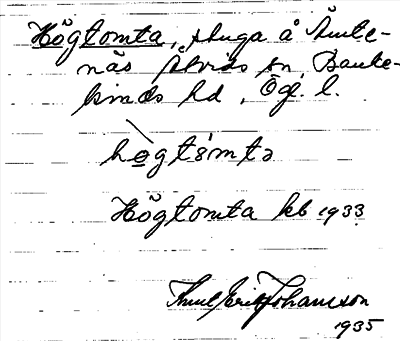 Högtomta, stuga å Ämte-
näs Åtvids sn, Banke-
kinds hd, Ög. l.
hǫgtómtə
Högtomta kb 1933
Arvid Erik Johansson
1935